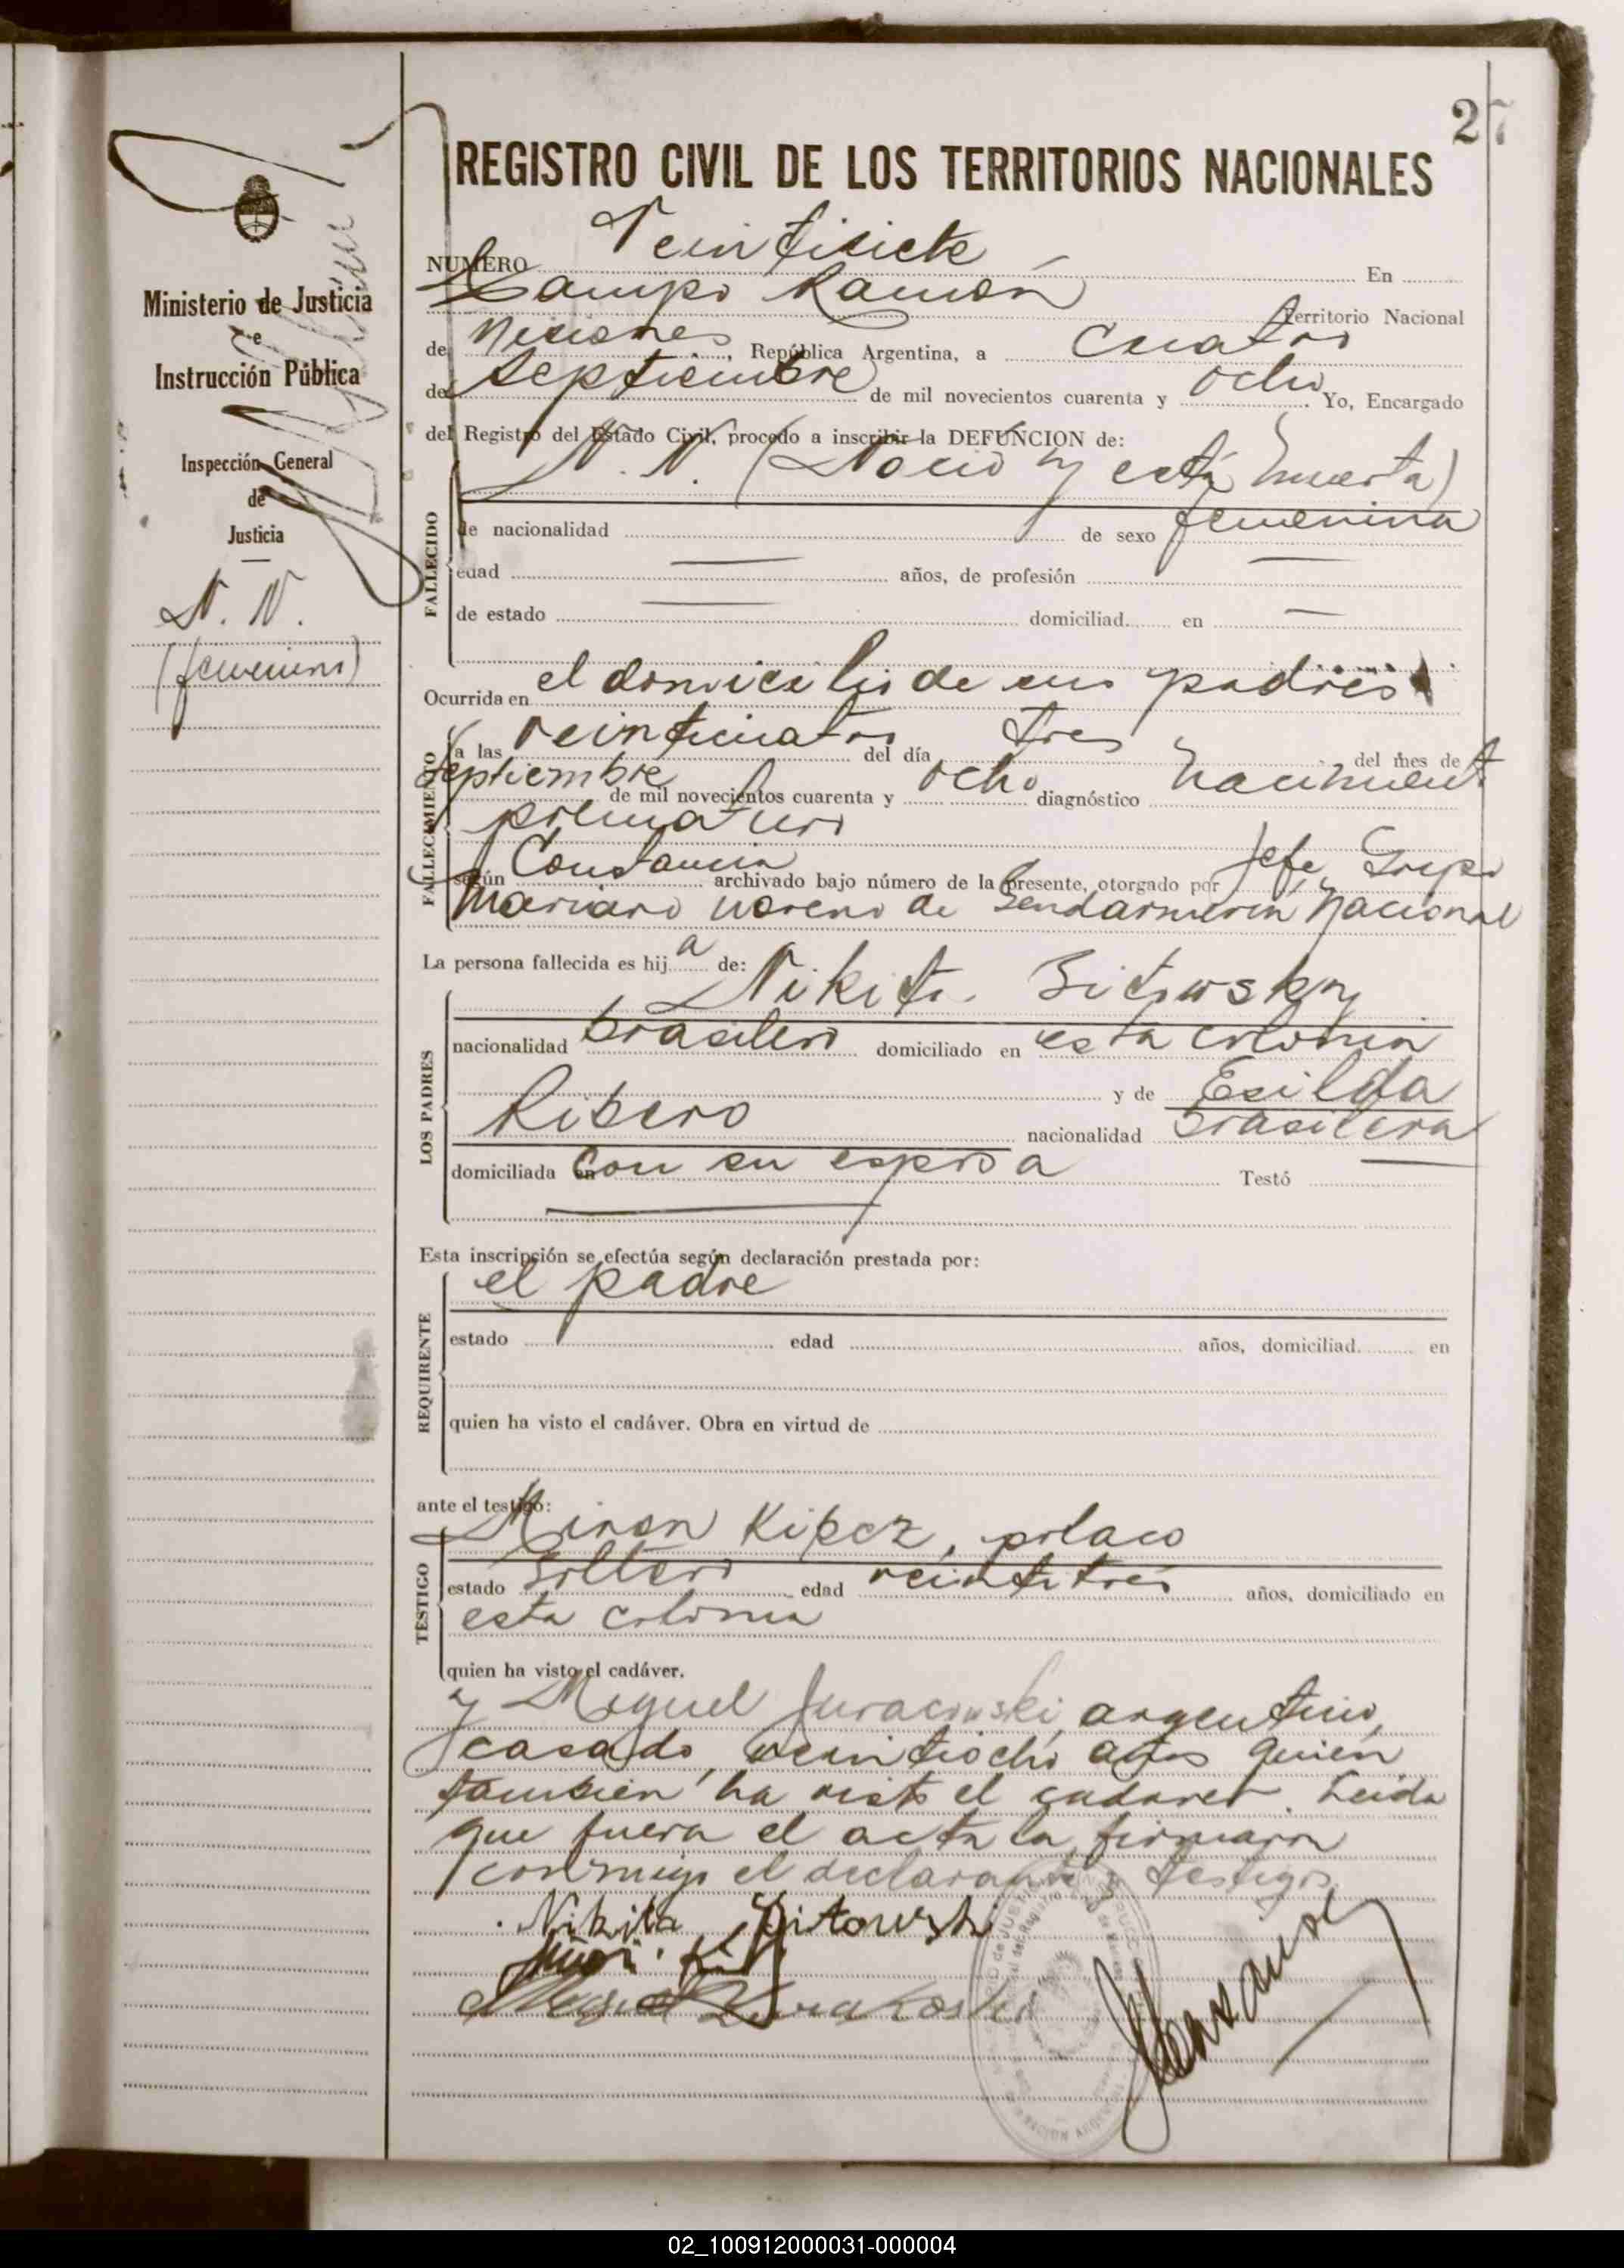 27
REGISTRO CIVIL DE LOS TERRITORIOS NACIONALES
Ministerio de Justicia
e
Instrucción Pública
Inspección General
de
Justicia
N. N.
(femenino)
NUMERO Veintisiete En
Campo Ramón Territorio Nacional
de Misiones, República Argentina, a Cuatro
de Septiembre de mil novecientos cuarenta y ocho. Yo, Encargado
del Registro del Estado Civil, procedo a inscribir la DEFUNCION de:
FALLECIDO
N. N. (Nació y está muerta)
de nacionalidad de sexo femenina
edad años, de profesión
de estado domiciliad en
Ocurrida en el domicilio de sus padres
FALLECIMIENTO
a las veinticuatro del día tres del mes de
Septiembre de mil novecientos cuarenta y ocho diagnóstico nacimient
prematuro
según Constancia archivado bajo número de la presente, otorgado por Jefe Grupo
Mariano Moreno de Gendarmería Nacional
La persona fallecida es hija de:
LOS PADRES
Nikita Zitowsky
nacionalidad brasilero domiciliado en esta colonia
y de Esilda
Ribero nacionalidad brasilera
domiciliada en con su esposo a Testó
Esta inscripción se efectúa según declaración prestada por:
REQUIRENTE
el padre
estado edad años, domiciliad en
quien ha visto el cadáver. Obra en virtud de
ante el testigo:
TESTIGO
Miron Kipez, polaco
estado soltero edad veintitrés años, domiciliado en
esta colonia
quien ha visto el cadáver.
y Miguel Juracowski, argentino,
casado, veintiocho años quién
también ha visto el cadaver. Leida
que fuera el acta la firmaron
conmigo el declarante y testigos.
Nikita Zitowsk
02_100912000031-000004